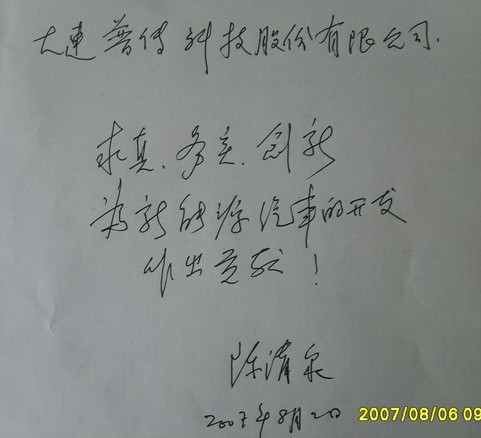 大连普传科技股份有限公司.
求真、务实、创新
为新能源汽车的开发
作出贡献!
陈清泉
2007年8月2日
2007/08/06 09